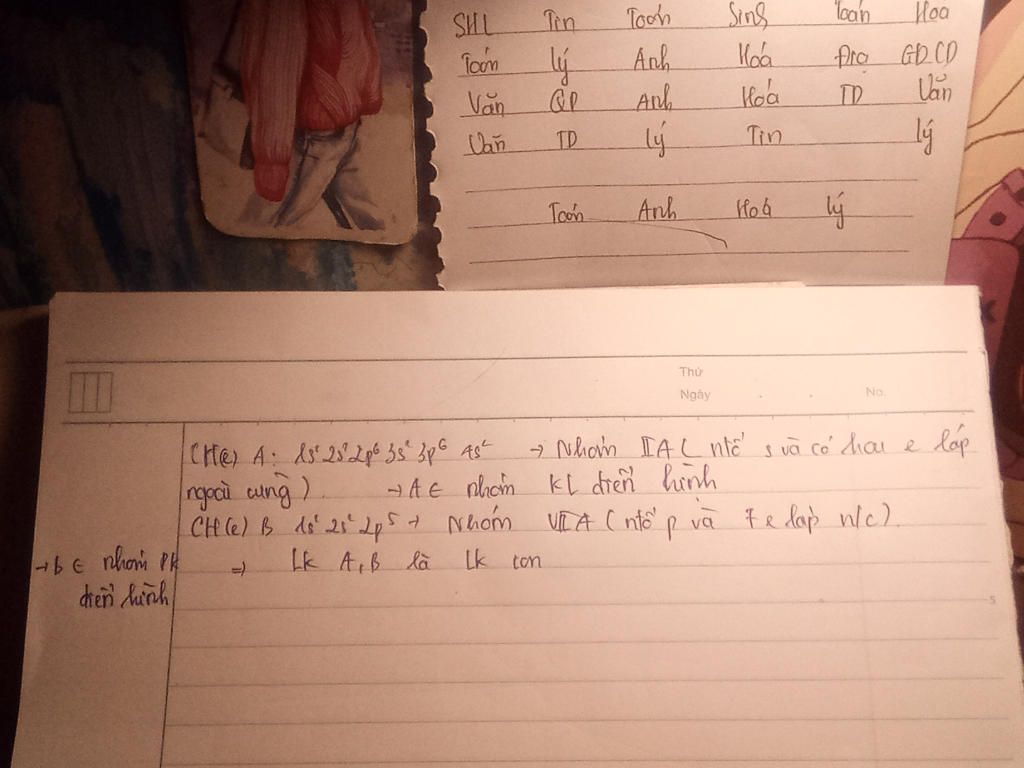 SHL Tin Toán Sinh Toán Hoa
Toán lý Anh Hoá Địa GDCD
Văn QP Anh Hoá TD Văn
Văn TD lý Tin lý
Toán Anh Hoá lý
Thứ
Ngày No.
CH(e) A: 1s² 2s² 2p⁶ 3s² 3p⁶ 4s² → Nhóm IIA ( ntố s và có hai e lớp
ngoài cùng ). → A ∈ nhóm KL điển hình
CH(e) B 1s² 2s² 2p⁵ → Nhóm VIIA ( ntố p và 7 e lớp n/c).
→ B ∈ nhóm PK
điển hình
⇒ Lk A, B là Lk ion
5